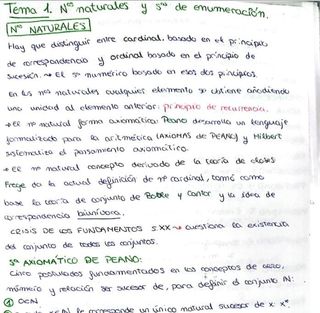 Tema 1. Nºˢ naturales y sª de enumeración.
Nº NATURALES
Hay que distinguir entre cardinal, basado en el principio
de correspondencia y ordinal basado en el principio de
sucesión. → El sª numérico basado en esos dos principios.
En los nºs naturales cualquier elemento se obtiene añadiendo
una unidad al elemento anterior: principio de recurrencia.
• El nº natural forma axiomática Peano desarrolla un lenguaje
formalizado para la aritmética (AXIOMAS de PEANO) y Hilbert
sistematiza el pensamiento axiomático.
• El nº natural concepto derivado de la teoría de clases
Frege da la actual definición de nº cardinal, tomó como
base la teoría de conjunto de Boole y Cantor y la idea de
correspondencia biunívoca.
CRISIS DE LOS FUNDAMENTOS S.XX → cuestiona la existencia
del conjunto de todos los conjuntos.
Sª AXIOMÁTICO DE PEANO:
Cinco postulados fundamentados en los conceptos de cero,
número y relación ser sucesor de, para definir el conjunto N:
① 0∈N
le corresponde un único natural sucesor de x: x*.